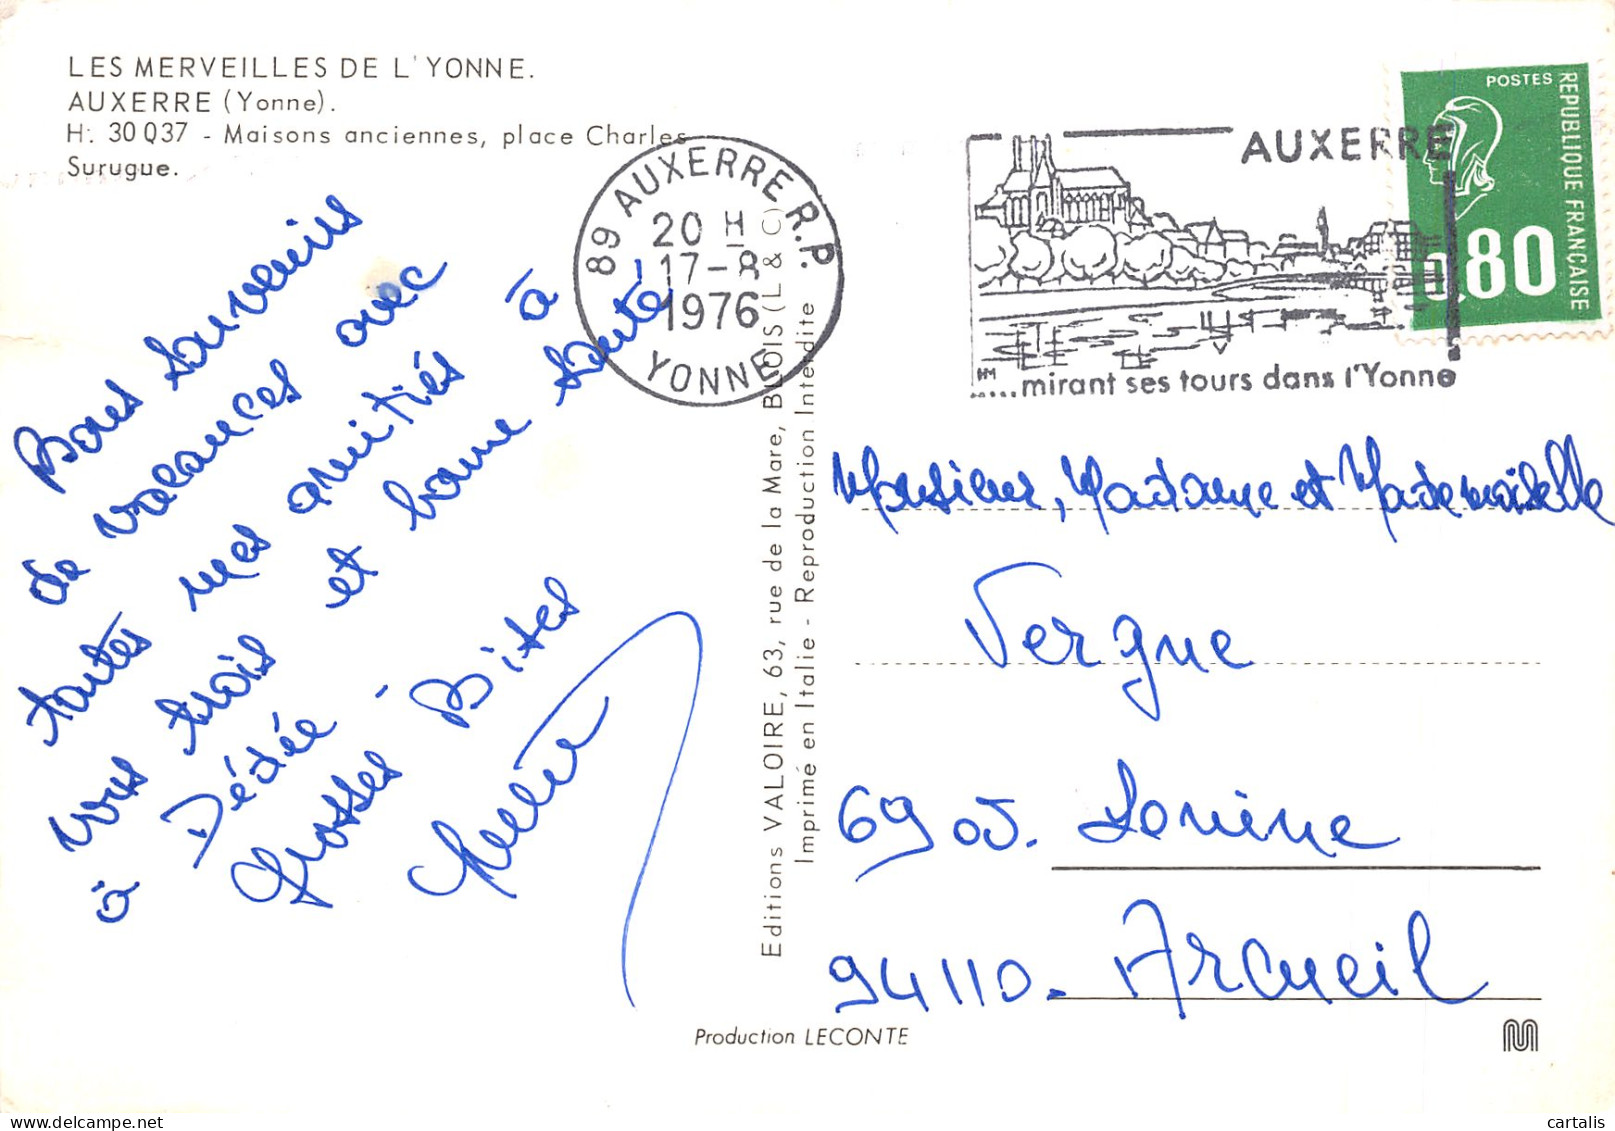 LES MERVEILLES DE L'YONNE.
AUXERRE (Yonne).
H. 30 037 - Maisons anciennes, place Charles
Surugue.
Bons souvenirs
de vacances avec
toutes mes amitiés à
vous trois et bonne santé
à Dédée !
Grosses Bises
89 AUXERRE R.P.
20 H
17-8
1976
YONNE
AUXERRE
.....mirant ses tours dans l'Yonne
HM
POSTES
REPUBLIQUE FRANÇAISE
0,80
Editions VALOIRE, 63, rue de la Mare, BLOIS (L & C)
Imprimé en Italie - Reproduction Interdite
Monsieur, Madame et Mademoiselle
Vergne
94110. Arcueil
Production LECONTE
cartalis